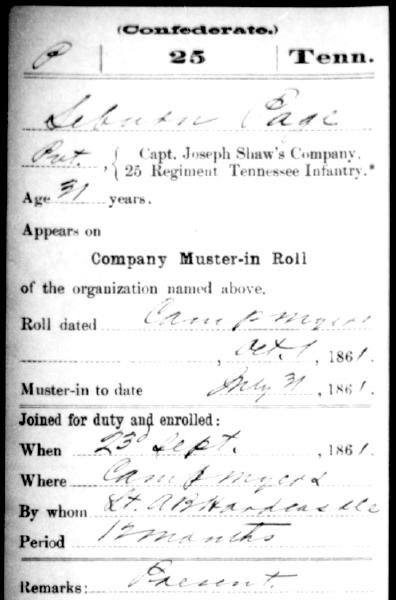 (Confederate.)
P 25 Tenn.
Lebuon Page
Pvt., { Capt. Joseph Shaw's Company,
25 Regiment Tennessee Infantry.*
Age 31 years.
Appears on
Company Muster-in Roll
of the organization named above.
Roll dated Camp Myers
Oct. 1, 1861.
Muster-in to date July 31, 1861.
Joined for duty and enrolled:
When 23d Sept., 1861.
Where Camp Myers
By whom Lt. A B Hardcastle
Period 12 months
Remarks: Present.